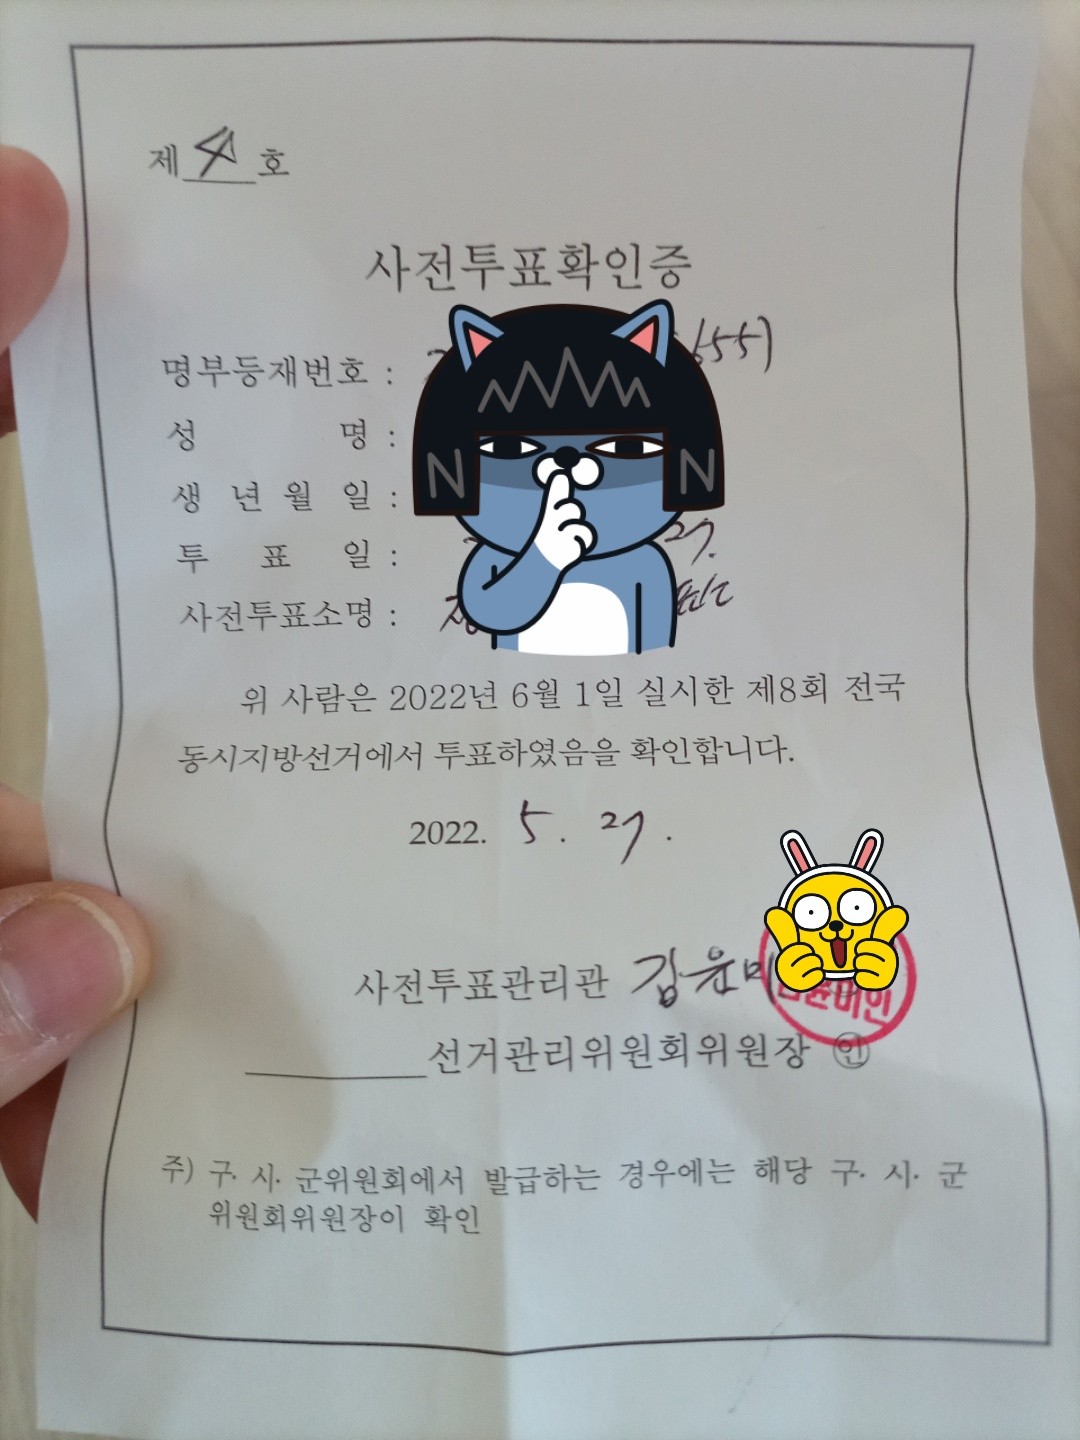 제 4 호
사전투표확인증
명부등재번호 : 655)
성 명 :
생 년 월 일 :
투 표 일 : 27.
사전투표소명 :
위 사람은 2022년 6월 1일 실시한 제8회 전국
동시지방선거에서 투표하였음을 확인합니다.
2022. 5. 27.
사전투표관리관 김윤미
선거관리위원회위원장 ㊞
주) 구·시·군위원회에서 발급하는 경우에는 해당 구·시·군
위원회위원장이 확인
N N